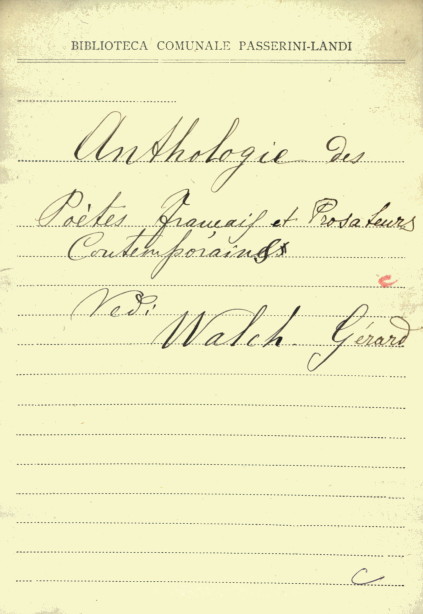 BIBLIOTECA COMUNALE PASSERINI-LANDI
Anthologie des
Poètes français et Prosateurs
Contemporains
c
Vedi
Walch Gérard
C